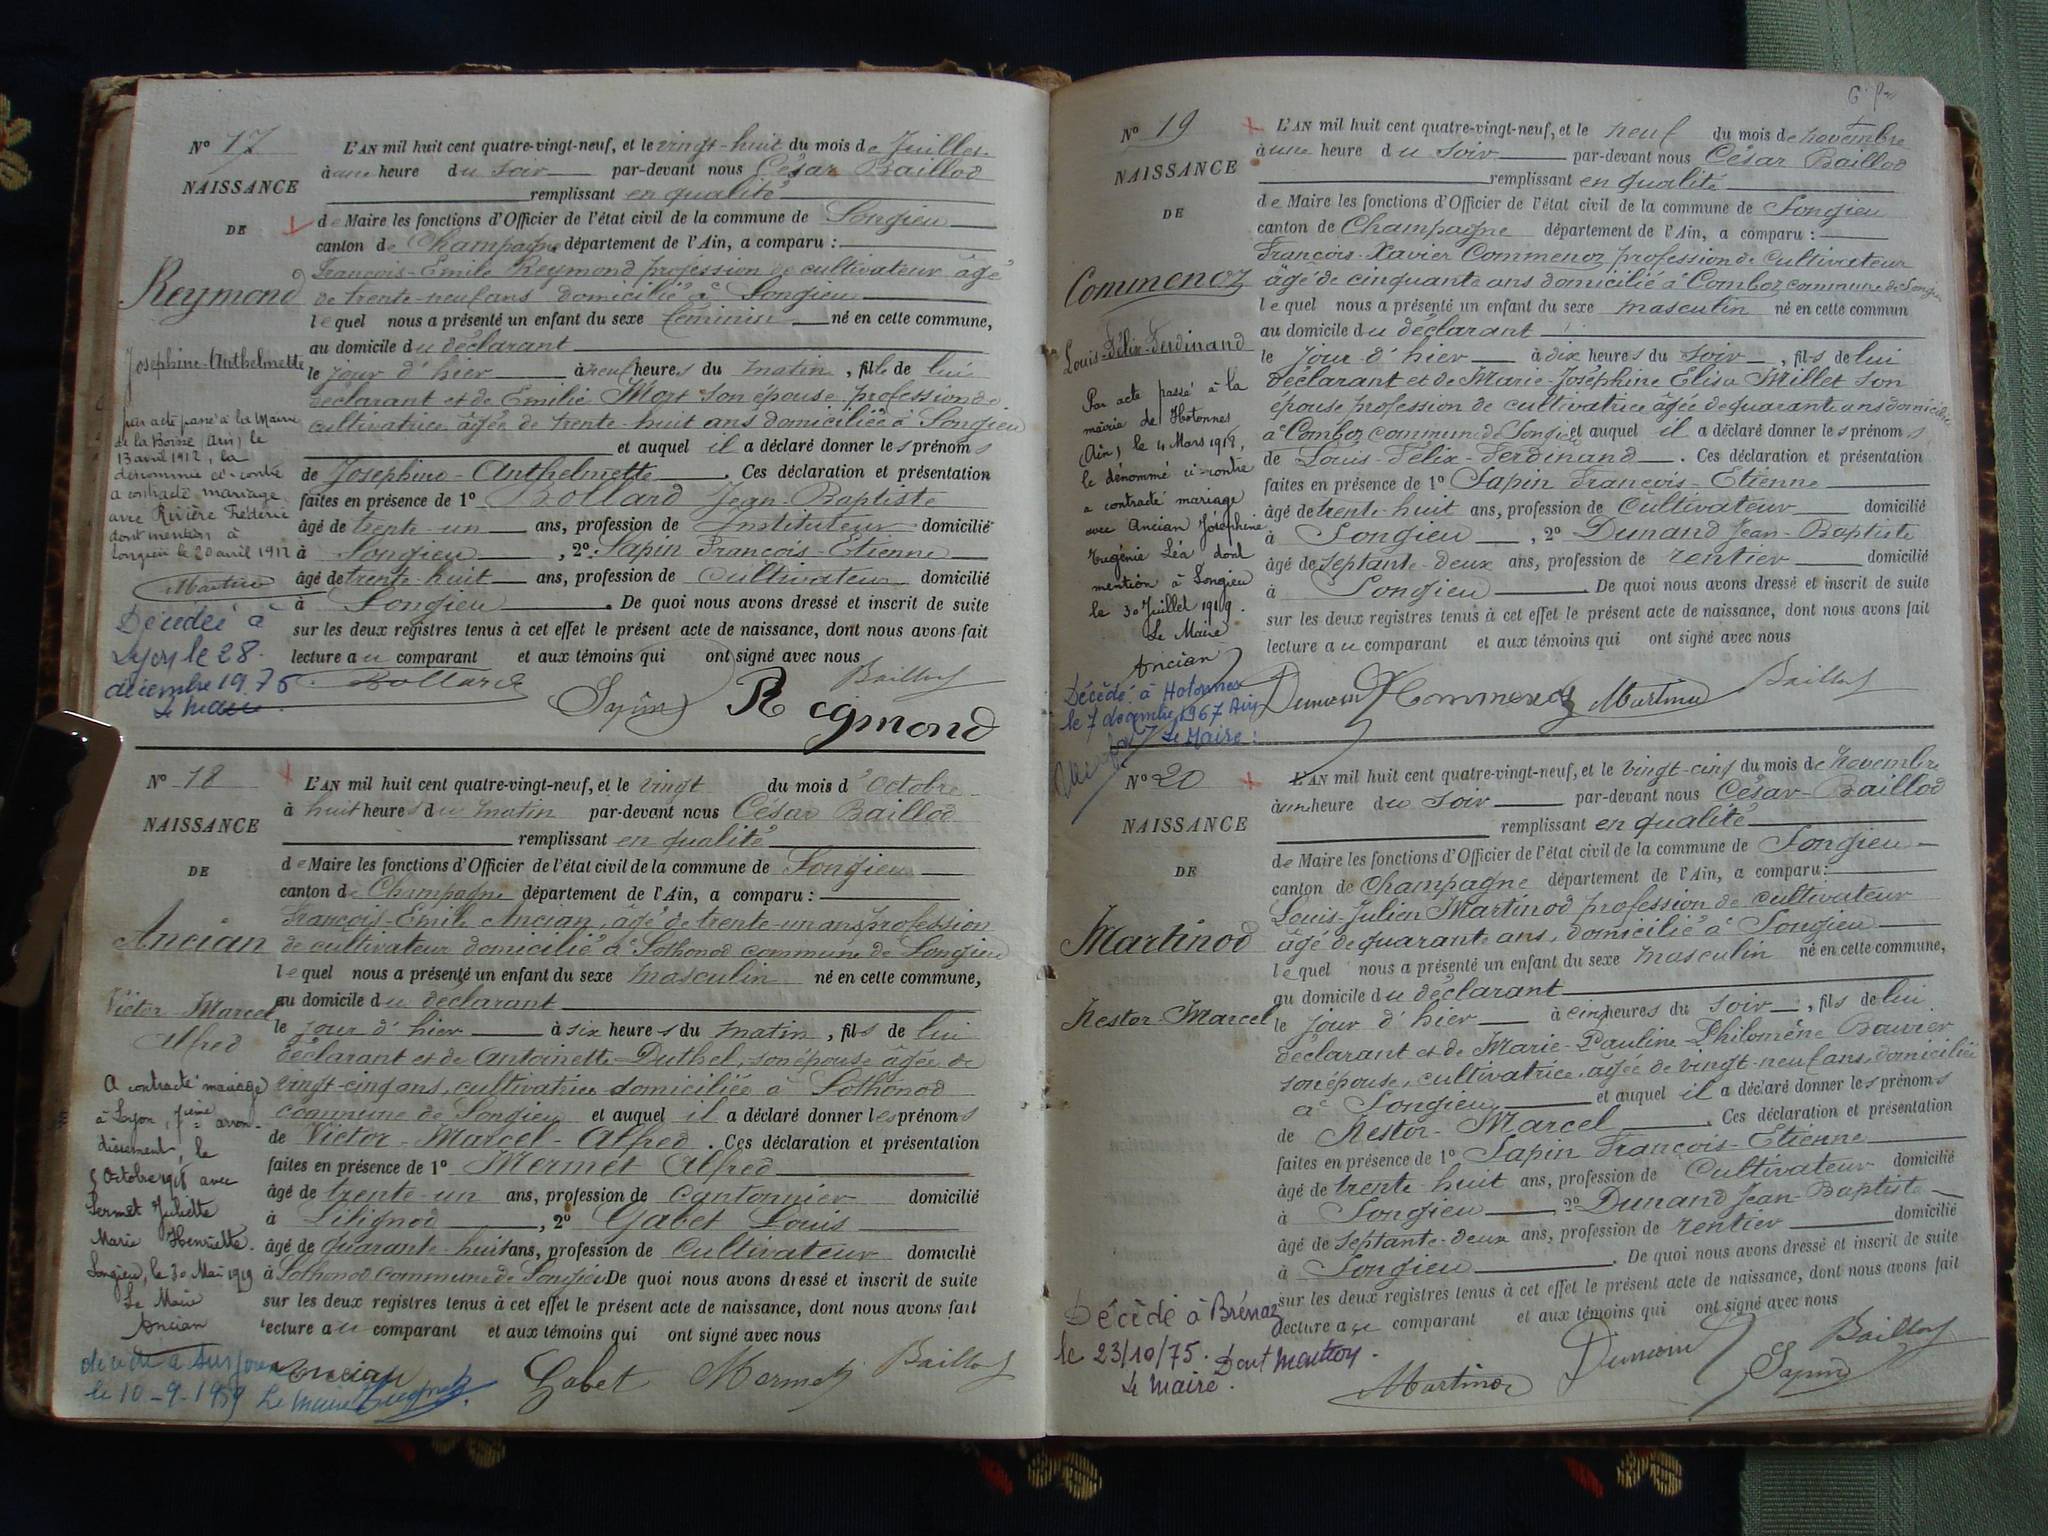 Nº 17
NAISSANCE
DE
Reymond
Josephine-Anthelmette
par acte passé à la Mairie
de la Boisse (Ain) le
13 avril 1912, la
dénommée ci-contre
a contracté mariage
avec Rivière Frédéric
dont mention à
Songieu le 20 avril 1912
Décédée à
Lyon le 28
décembre 1975.
Le Maire
L'AN mil huit cent quatre-vingt-neuf, et le vingt-huit du mois de Juillet
à une heure du soir par-devant nous César Baillod
remplissant en qualité
de Maire les fonctions d'Officier de l'état civil de la commune de Songieu
canton de Champagne département de l'Ain, a comparu :
François-Emile Reymond profession de cultivateur âgé
de trente-neuf ans domicilié à Songieu
lequel nous a présenté un enfant du sexe féminin né en cette commune,
au domicile du déclarant
le jour d'hier à neuf heures du matin, fille de lui
déclarant et de Emilie Mort son épouse profession de
cultivatrice âgée de trente-huit ans domiciliée à Songieu
et auquel il a déclaré donner les prénoms
de Joséphine-Anthelmette. Ces déclaration et présentation
faites en présence de 1º Bollard Jean-Baptiste
âgé de trente-un ans, profession de Instituteur domicilié
à Songieu, 2º Sapin François-Etienne
âgé de trente-huit ans, profession de cultivateur domicilié
à Songieu. De quoi nous avons dressé et inscrit de suite
sur les deux registres tenus à cet effet le présent acte de naissance, dont nous avons fait
lecture au comparant et aux témoins qui ont signé avec nous
Bollard Sapin Reymond Baillod
Nº 18
NAISSANCE
DE
Ancian
Victor-Marcel
Alfred
A contracté mariage
à Lyon, 7ième arron-
dissement, le
5 Octobre 1918 avec
Sermet Juliette
Marie Henriette.
Songieu, le 30 Mai 1919
Le Maire
Ancian
décédé à
le 10-9-1959 Le Maire
L'AN mil huit cent quatre-vingt-neuf, et le vingt du mois d'Octobre
à huit heures du matin par-devant nous César Baillod
remplissant en qualité
de Maire les fonctions d'Officier de l'état civil de la commune de Songieu
canton de Champagne département de l'Ain, a comparu :
François-Emile Ancian, âgé de trente-un ans profession
de cultivateur domicilié à Sothonod commune de Songieu
lequel nous a présenté un enfant du sexe masculin né en cette commune,
au domicile du déclarant
le jour d'hier à six heures du matin, fils de lui
déclarant et de Antoinette Duthel, son épouse âgée de
vingt-cinq ans, cultivatrice domiciliée à Sothonod
commune de Songieu et auquel il a déclaré donner les prénoms
de Victor-Marcel-Alfred. Ces déclaration et présentation
faites en présence de 1º Mermet Alfred
âgé de trente-un ans, profession de cantonnier domicilié
à Lilignod, 2º Gabet Louis
âgé de quarante-huit ans, profession de Cultivateur domicilié
à Sothonod commune de Songieu De quoi nous avons dressé et inscrit de suite
sur les deux registres tenus à cet effet le présent acte de naissance, dont nous avons fait
lecture au comparant et aux témoins qui ont signé avec nous
Ancian Gabet Mermet Baillod
Nº 19
NAISSANCE
DE
Commenoz
Louis-Félix-Ferdinand
Par acte passé à la
mairie de Hotonnes
(Ain), le 4 Mars 1918,
le dénommé ci-contre
a contracté mariage
avec Ancian Joséphine
Eugénie Léa dont
mention à Songieu
le 30 Juillet 1919.
Le Maire
Ancian
Décédé à Hotonnes
le 7 décembre 1967 Ain
Le Maire :
L'AN mil huit cent quatre-vingt-neuf, et le neuf du mois de novembre
à une heure du soir par-devant nous César Baillod
remplissant en qualité
de Maire les fonctions d'Officier de l'état civil de la commune de Songieu
canton de Champagne département de l'Ain, a comparu :
François-Xavier Commenoz profession de Cultivateur
âgé de cinquante ans domicilié à Comboz commune de Songieu
lequel nous a présenté un enfant du sexe masculin né en cette commun
au domicile du déclarant
le jour d'hier à dix heures du soir, fils de lui
déclarant et de Marie-Joséphine Elisa Millet son
épouse profession de cultivatrice âgée de quarante ans domiciliée
à Comboz commune de Songieu et auquel il a déclaré donner les prénoms
de Louis-Félix-Ferdinand. Ces déclaration et présentation
faites en présence de 1º Sapin François-Etienne
âgé de trente-huit ans, profession de Cultivateur domicilié
à Songieu, 2º Dunand Jean-Baptiste
âgé de septante-deux ans, profession de rentier domicilié
à Songieu. De quoi nous avons dressé et inscrit de suite
sur les deux registres tenus à cet effet le présent acte de naissance, dont nous avons fait
lecture au comparant et aux témoins qui ont signé avec nous
Dunand Commenoz Martinod Baillod
Nº 20
NAISSANCE
DE
Martinod
Nestor-Marcel
Décédé à Brénaz
le 23/10/75. Dont mention.
Le Maire.
L'AN mil huit cent quatre-vingt-neuf, et le vingt-cinq du mois de novembre
à une heure du soir par-devant nous César-Baillod
remplissant en qualité
de Maire les fonctions d'Officier de l'état civil de la commune de Songieu
canton de Champagne département de l'Ain, a comparu :
Louis-Julien Martinod profession de cultivateur
âgé de quarante ans, domicilié à Songieu
lequel nous a présenté un enfant du sexe masculin né en cette commune,
au domicile du déclarant
le jour d'hier à cinq heures du soir, fils de lui
déclarant et de Marie-Pauline-Philomène Bouvier
son épouse, cultivatrice, âgée de vingt-neuf ans, domiciliée
à Songieu et auquel il a déclaré donner les prénoms
de Nestor-Marcel. Ces déclaration et présentation
faites en présence de 1º Sapin François-Etienne
âgé de trente-huit ans, profession de Cultivateur domicilié
à Songieu, 2º Dunand Jean-Baptiste
âgé de septante-deux ans, profession de rentier domicilié
à Songieu. De quoi nous avons dressé et inscrit de suite
sur les deux registres tenus à cet effet le présent acte de naissance, dont nous avons fait
lecture au comparant et aux témoins qui ont signé avec nous
Martinod Dunand Sapin Baillod